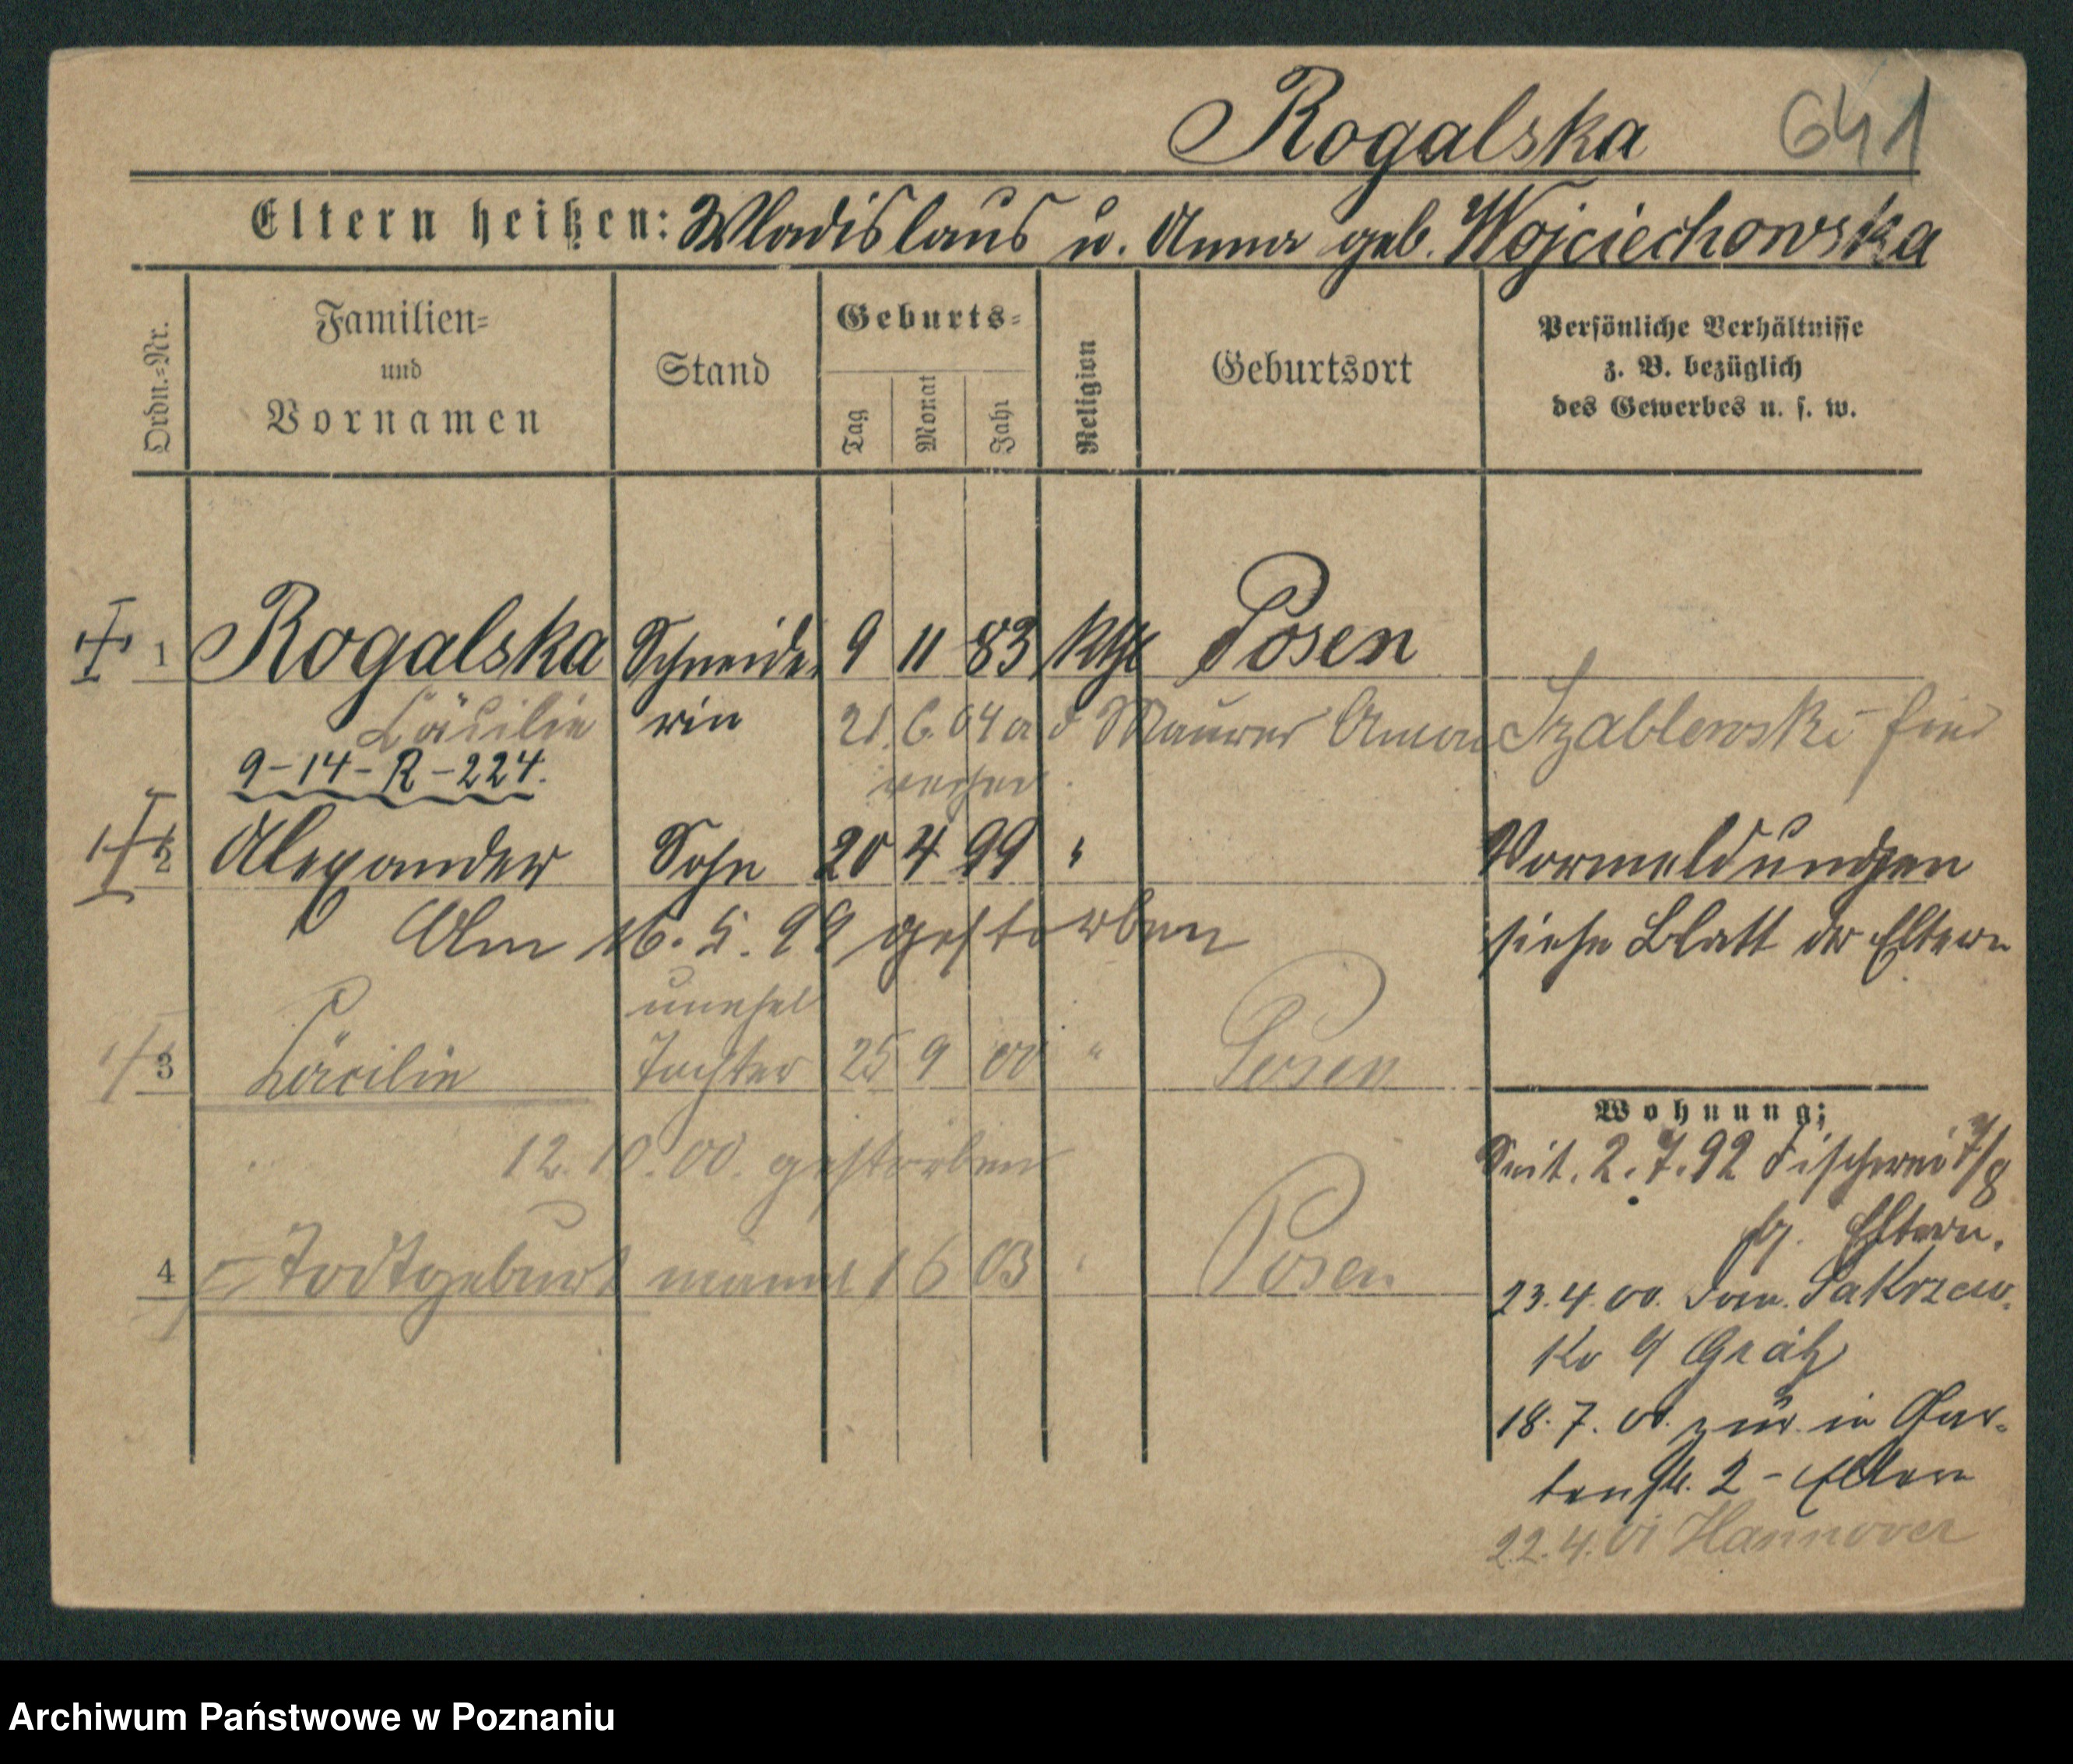 Rogalska 641
Eltern heißen: Wladislaus u. Anna geb. Wojciechowska
Ordn.=Nr.
Familien=
und
Vornamen
Stand
Geburts=
Tag
Monat
Jahr
Religion
Geburtsort
Persönliche Verhältnisse
z. B. bezüglich
des Gewerbes u. s. w.
1 Rogalska Schneide 9 11 83 kth Posen
Cäcilie rin 21. 6. 04 a d Maurer Szablewski
9-14-R-224.
2 Alexander Sohn 20 4 99 " Vormeldungen
Am 16. 5. 99 gestorben siehe Blatt der Eltern
unehel
3 Cäcilie Tochter 25 9 00 " Posen
12. 10. 00. gestorben
4 Todtgeburt männl 1 6 03 " Posen
Wohnung:
Seit. 2. 7. 92 Fischerei 7/8
Eltern.
23. 4. 00. Dom. Sakrzew.
Gratz
18. 7. 00. zur. in Gar-
tenstr. 2 - Eltern
22. 4. 01 Hannover
Archiwum Państwowe w Poznaniu